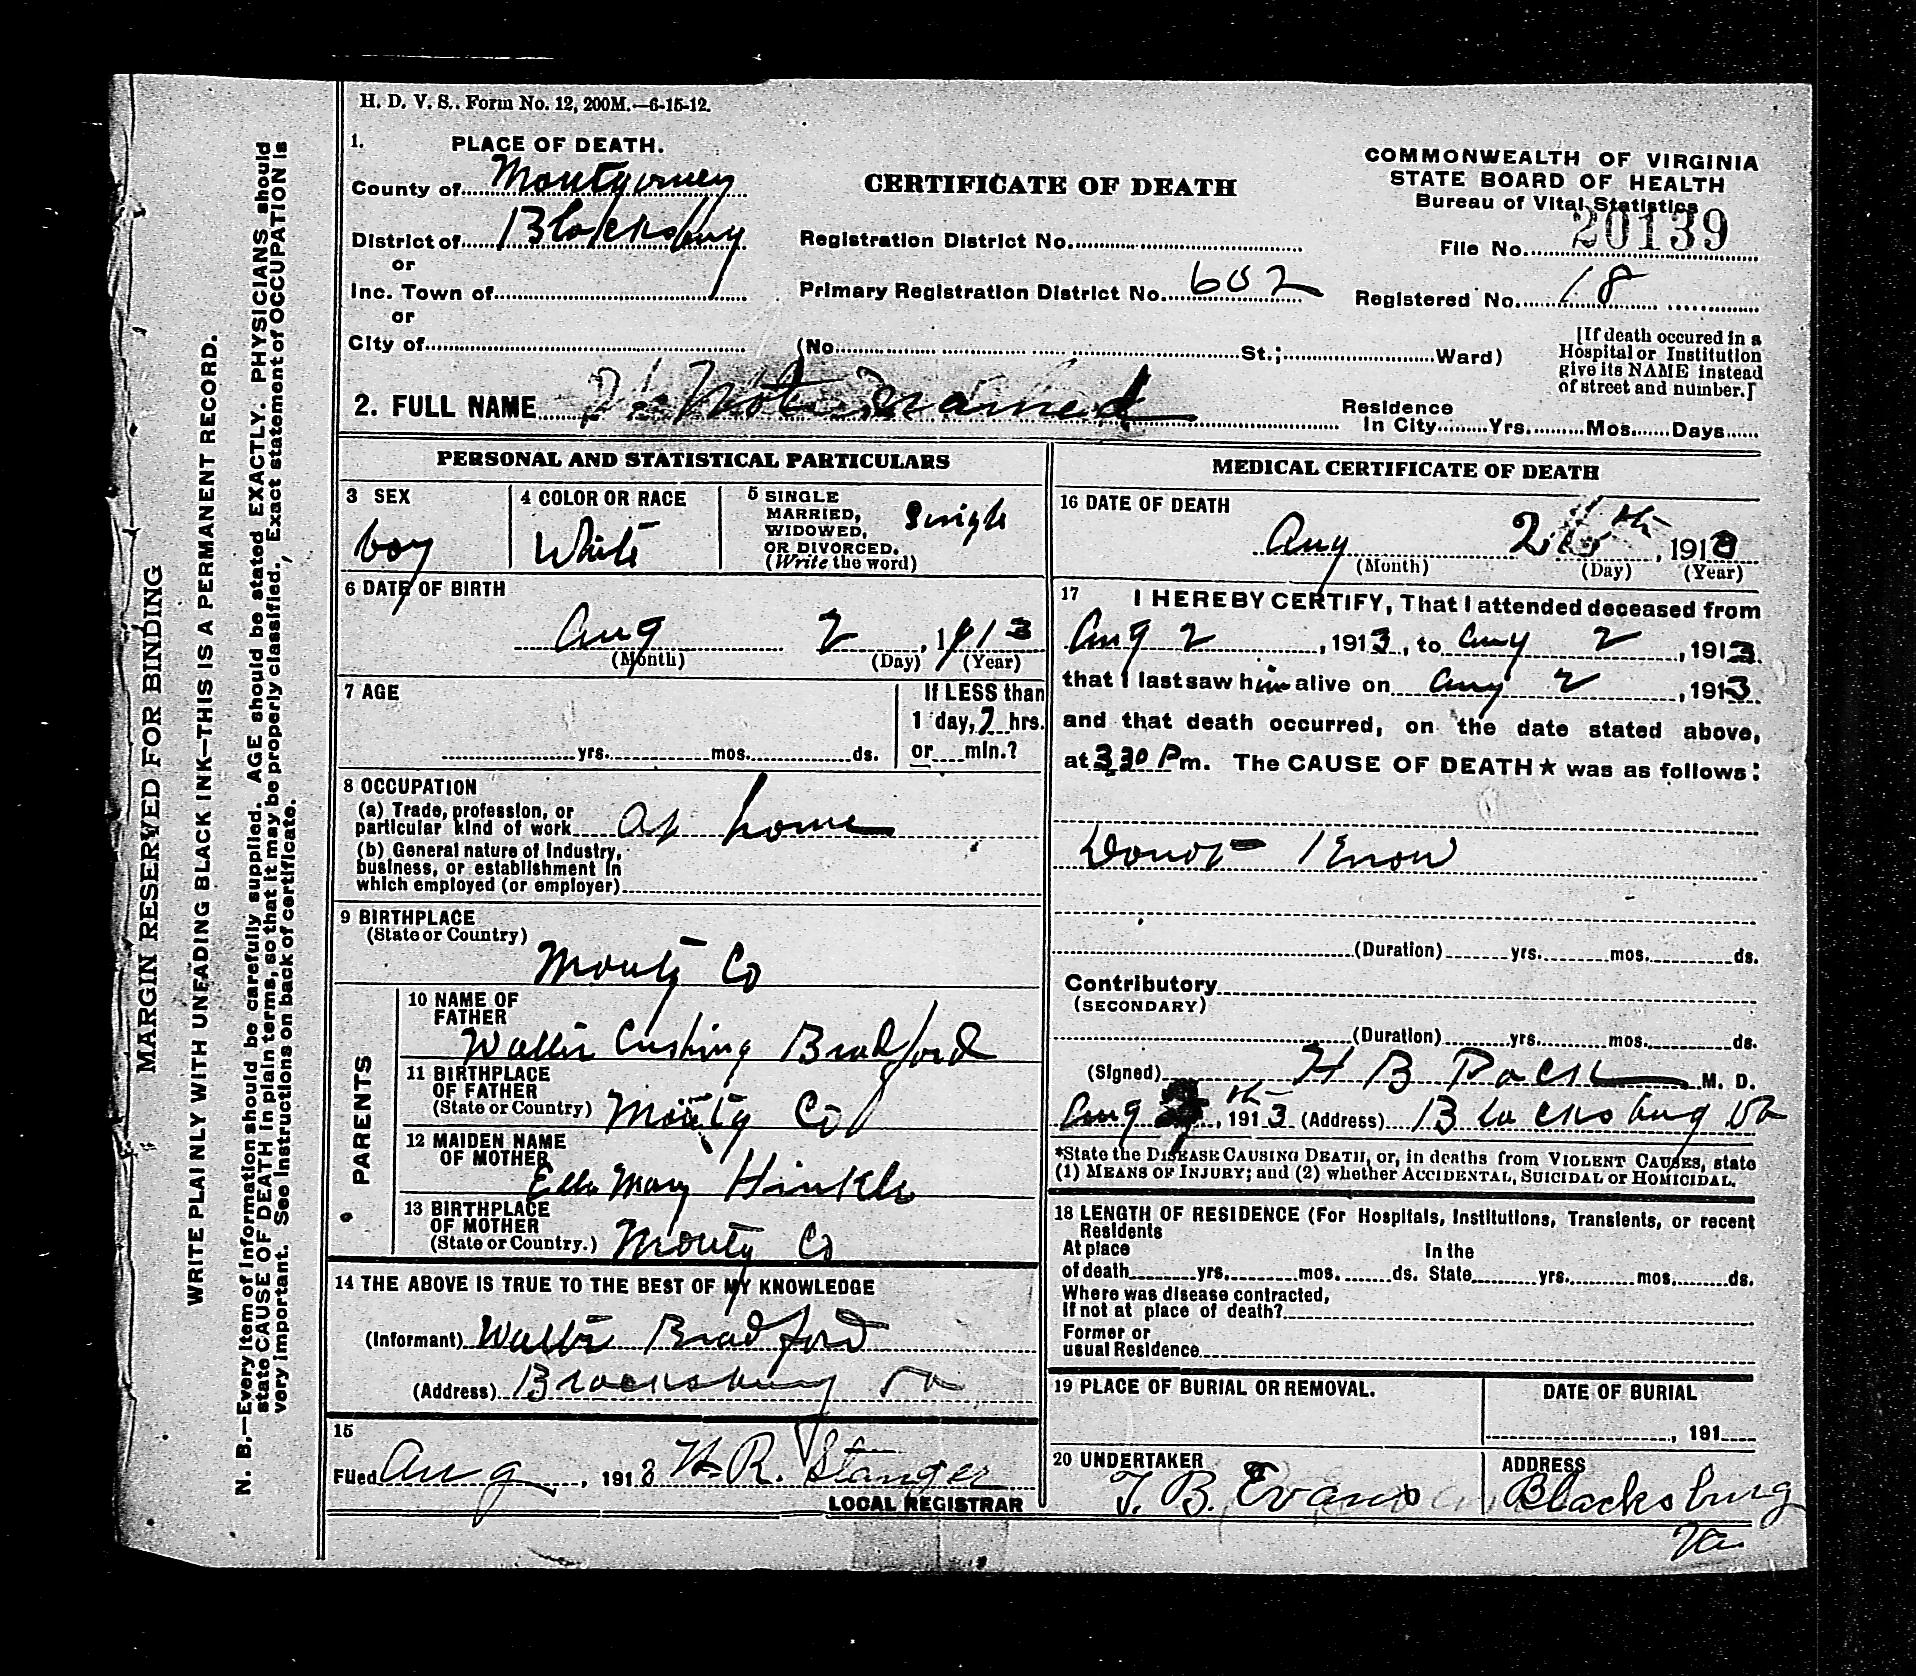 H. D. V. S.. Form No. 12, 200M.—6-15-12.
1. PLACE OF DEATH.
County of Montgomery
District of Blacksburg
or
Inc. Town of
or
City of
CERTIFICATE OF DEATH
COMMONWEALTH OF VIRGINIA
STATE BOARD OF HEALTH
Bureau of Vital Statistics
Registration District No.
File No. 20139
Primary Registration District No. 602
Registered No. 18
(No. St.; Ward)
[If death occured in a
Hospital or Institution
give its NAME instead
of street and number.]
2. FULL NAME Not Named
Residence
In City Yrs. Mos. Days
PERSONAL AND STATISTICAL PARTICULARS
3 SEX
boy
4 COLOR OR RACE
White
5 SINGLE
MARRIED,
WIDOWED,
OR DIVORCED.
(Write the word)
Single
6 DATE OF BIRTH
Aug 2, 1913
(Month) (Day) (Year)
7 AGE
yrs. mos. ds.
If LESS than
1 day, 2 hrs.
or min.?
8 OCCUPATION
(a) Trade, profession, or
particular kind of work at home
(b) General nature of Industry,
business, or establishment in
which employed (or employer)
9 BIRTHPLACE
(State or Country)
Montg Co
PARENTS
10 NAME OF
FATHER
Walter Cushing Bradford
11 BIRTHPLACE
OF FATHER
(State or Country) Montg Co
12 MAIDEN NAME
OF MOTHER
Ella Mary Hinkle
13 BIRTHPLACE
OF MOTHER
(State or Country.) Montg Co
14 THE ABOVE IS TRUE TO THE BEST OF MY KNOWLEDGE
(Informant) Walter Bradford
(Address) Blacksburg Va
15
Filed Aug, 1913 H. R. Stanger
LOCAL REGISTRAR
MEDICAL CERTIFICATE OF DEATH
16 DATE OF DEATH
Aug 2 th, 1913
(Month) (Day) (Year)
17 I HEREBY CERTIFY, That I attended deceased from
Aug 2, 1913, to Aug 2, 1913.
that I last saw him alive on Aug 2, 1913
and that death occurred, on the date stated above,
at 3.30 Pm. The CAUSE OF DEATH★ was as follows:
Donot Know
(Duration) yrs. mos. ds.
Contributory
(SECONDARY)
(Duration) yrs. mos. ds.
(Signed) H B Pack M. D.
Aug th, 1913 (Address) Blacksburg Va
*State the DISEASE CAUSING DEATH, or, in deaths from VIOLENT CAUSES, state
(1) MEANS OF INJURY; and (2) whether ACCIDENTAL, SUICIDAL or HOMICIDAL.
18 LENGTH OF RESIDENCE (For Hospitals, Institutions, Transients, or recent
Residents
At place
of death yrs. mos. ds.
In the
State yrs. mos. ds.
Where was disease contracted,
If not at place of death?
Former or
usual Residence
19 PLACE OF BURIAL OR REMOVAL.
DATE OF BURIAL
, 191
20 UNDERTAKER
T. B. Evans
ADDRESS
Blacksburg
Va.
MARGIN RESERVED FOR BINDING
WRITE PLAINLY WITH UNFADING BLACK INK—THIS IS A PERMANENT RECORD.
N. B.—Every item of information should be carefully supplied. AGE should be stated EXACTLY. PHYSICIANS should
state CAUSE OF DEATH in plain terms, so that it may be properly classified. Exact statement of OCCUPATION is
very important. See instructions on back of certificate.